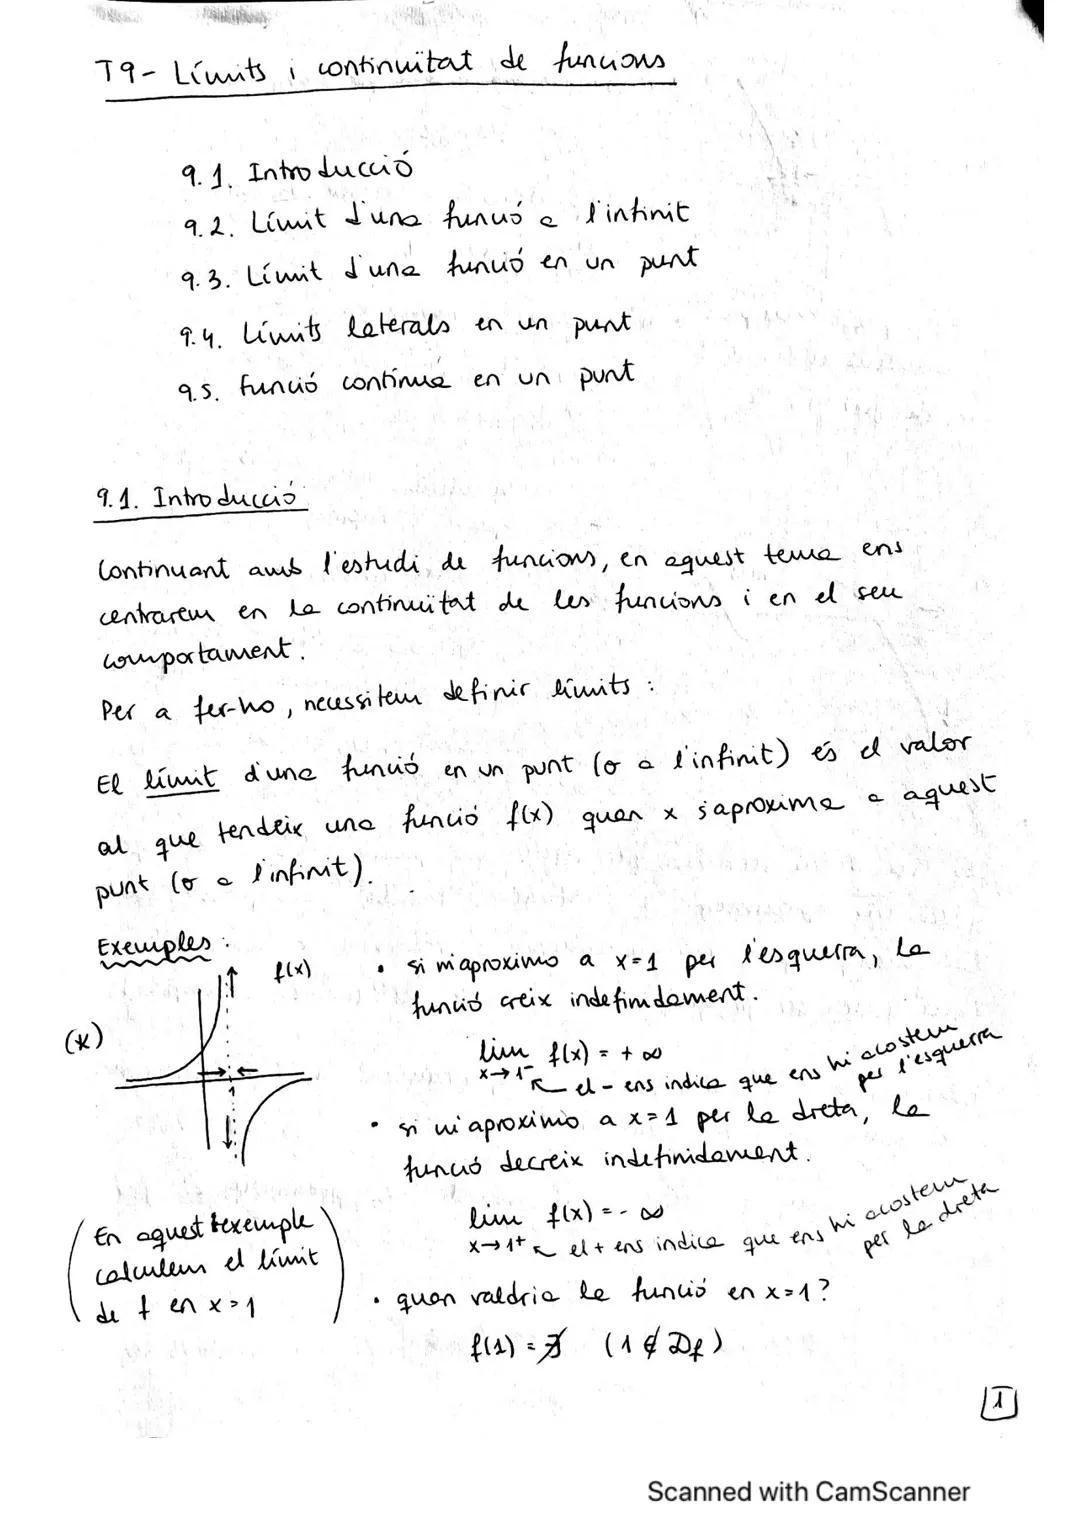 T9- Límits i continuïtat de funcions
9.1. Introducció
9.2. Límit d'una funció a l'infinit
9.3. Límit d'una funció en un punt
9.4. Límits laterals en un punt
9.5. funció contínua en un punt
9.1. Introducció
Continuant amb l'estudi de funcions, en aquest tema ens
centrarem en la continuïtat de les funcions i en el seu
comportament.
Per a fer-ho, necessitem definir límits :
El límit d'una funció en un punt (o a l'infinit) és el valor
al que tendeix una funció f(x) quan x s'aproxima a aquest
punt (o a l'infinit).
Exemples :
f(x)
(*)
1
(En aquest exemple
calculem el límit
de f en x=1)
• si m'aproximo a x=1 per l'esquerra, la
funció creix indefinidament.
lim f(x) = + ∞
x→1⁻ el - ens indica que ens hi acostem
per l'esquerra
• si m'aproximo a x=1 per la dreta, la
funció decreix indefinidament.
lim f(x) = - ∞
x→1⁺ el + ens indica que ens hi acostem
per la dreta
• quan valdria la funció en x=1?
f(1) = ∄ (1 ∉ Df)
1
Scanned with CamScanner